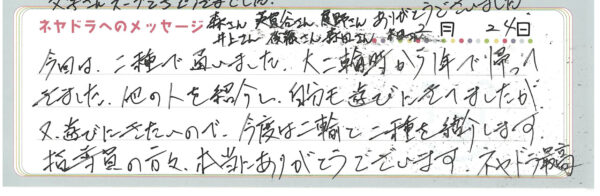 ネヤドラへのメッセージ
森さん 天宜谷さん 星野さん ありがとうございました
井上さん 後藤さん 森田さん
月 24日
今回は、二種で通いました。大二輪時から1年で帰って
きました。他の人を紹介し、自分も遊びにきてましたが
又、遊びにきたいので、今度は二輪で二種を紹介します。
指導員の方々、本当にありがとうございます。ネヤドラ最高